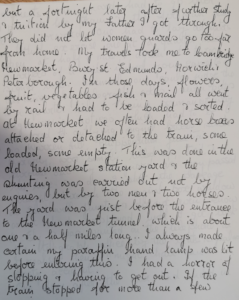 but a fortnight later after further study
& tuition by my Father I got through.
They did not let women guards go too far
from home. My travels took me to Cambridge
Newmarket, Bury St Edmunds, Norwich &
Peterborough. In those days, flowers,
fruit, vegetables fish & mail all went
by rail & had to be loaded & sorted.
At Newmarket we often had horse boxes
attached or detached to the train, some
loaded, some empty. This was done in the
old Newmarket station yard & the
shunting was carried out not by
engines, but by two men & two horses.
The yard was just before the entrance
to the Newmarket tunnel which is about
one & a half miles long. I always made
certain my paraffin hand lamp was lit
before entering this. I had a horror of
stopping & having to get out. If the
train stopped for more than a few